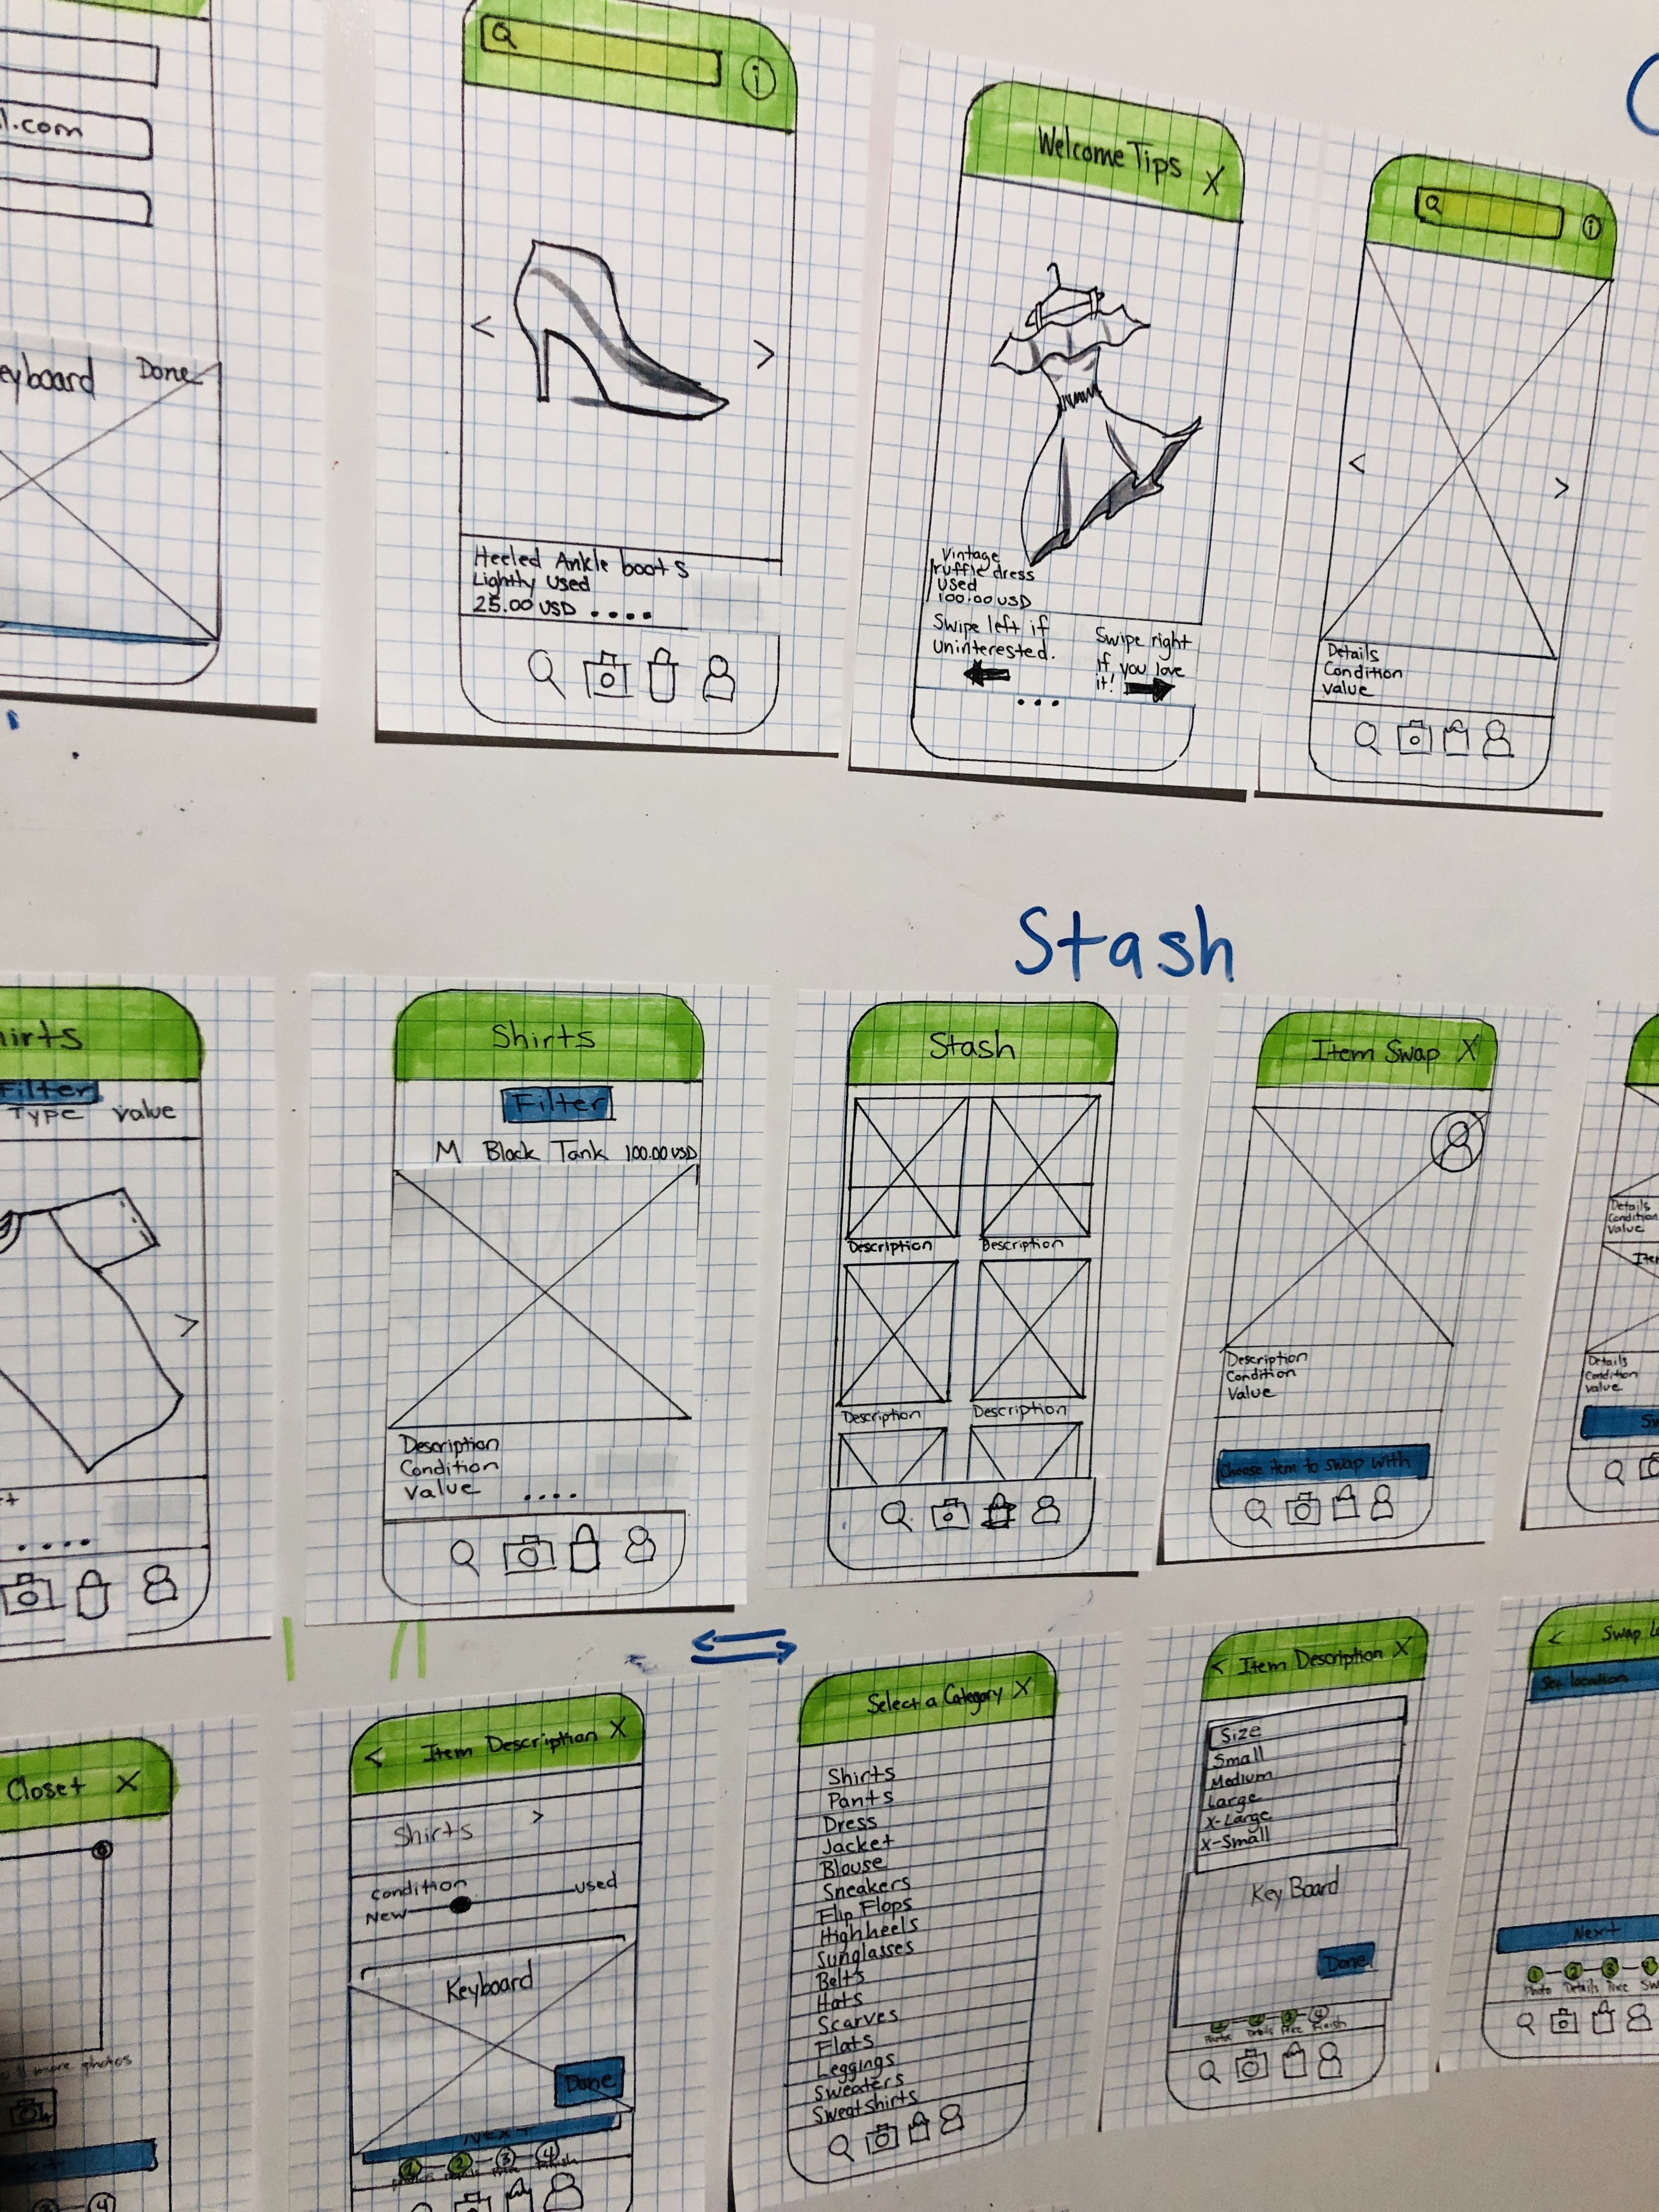 l.com
eyboard Done
Heeled Ankle boots
Lightly used
25.00 USD
Welcome Tips X
Vintage
ruffle dress
used
100.00 USD
Swipe left if
uninterested.
Swipe right
if you love
it!
Details
Condition
Value
Stash
hirts
Filter
Type Value
Shirts
Filter
M Black Tank 100.00 USD
Description
Condition
Value
Stash
Description Description
Description Description
Item Swap X
Description
Condition
Value
Choose item to swap with
Details
Condition
Value
Details
Condition
Value
Closet X
more photos
4
< Item Description X
Shirts >
Condition
New used
Keyboard
Done
Next
1 2 3 4
Select a Category X
Shirts
Pants
Dress
Jacket
Blouse
Sneakers
Flip Flops
High heels
Sunglasses
Belts
Hats
Scarves
Flats
Leggings
Sweaters
Sweatshirts
< Item Description X
Size
Small
Medium
Large
X-Large
X-Small
Key Board
Done
Finish
< Swap
Set location
Next
1 2 3
Photo Details Price